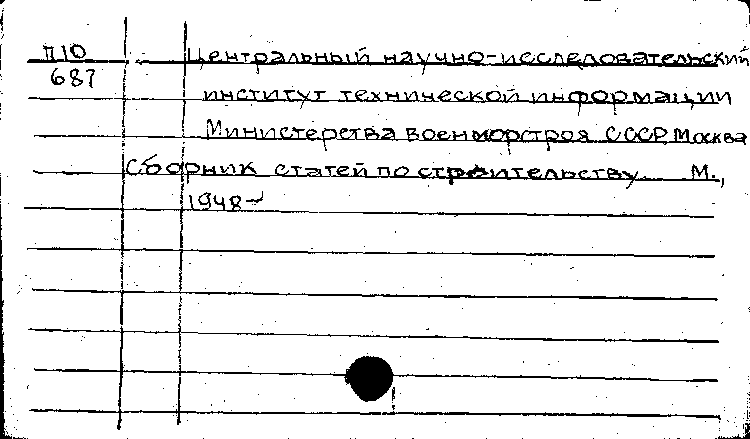 П10
687
Центральный научно-исследовательский
институт технической информации
Министерства военморстроя СССР Москва
Сборник статей по строительству. М.,
1948-